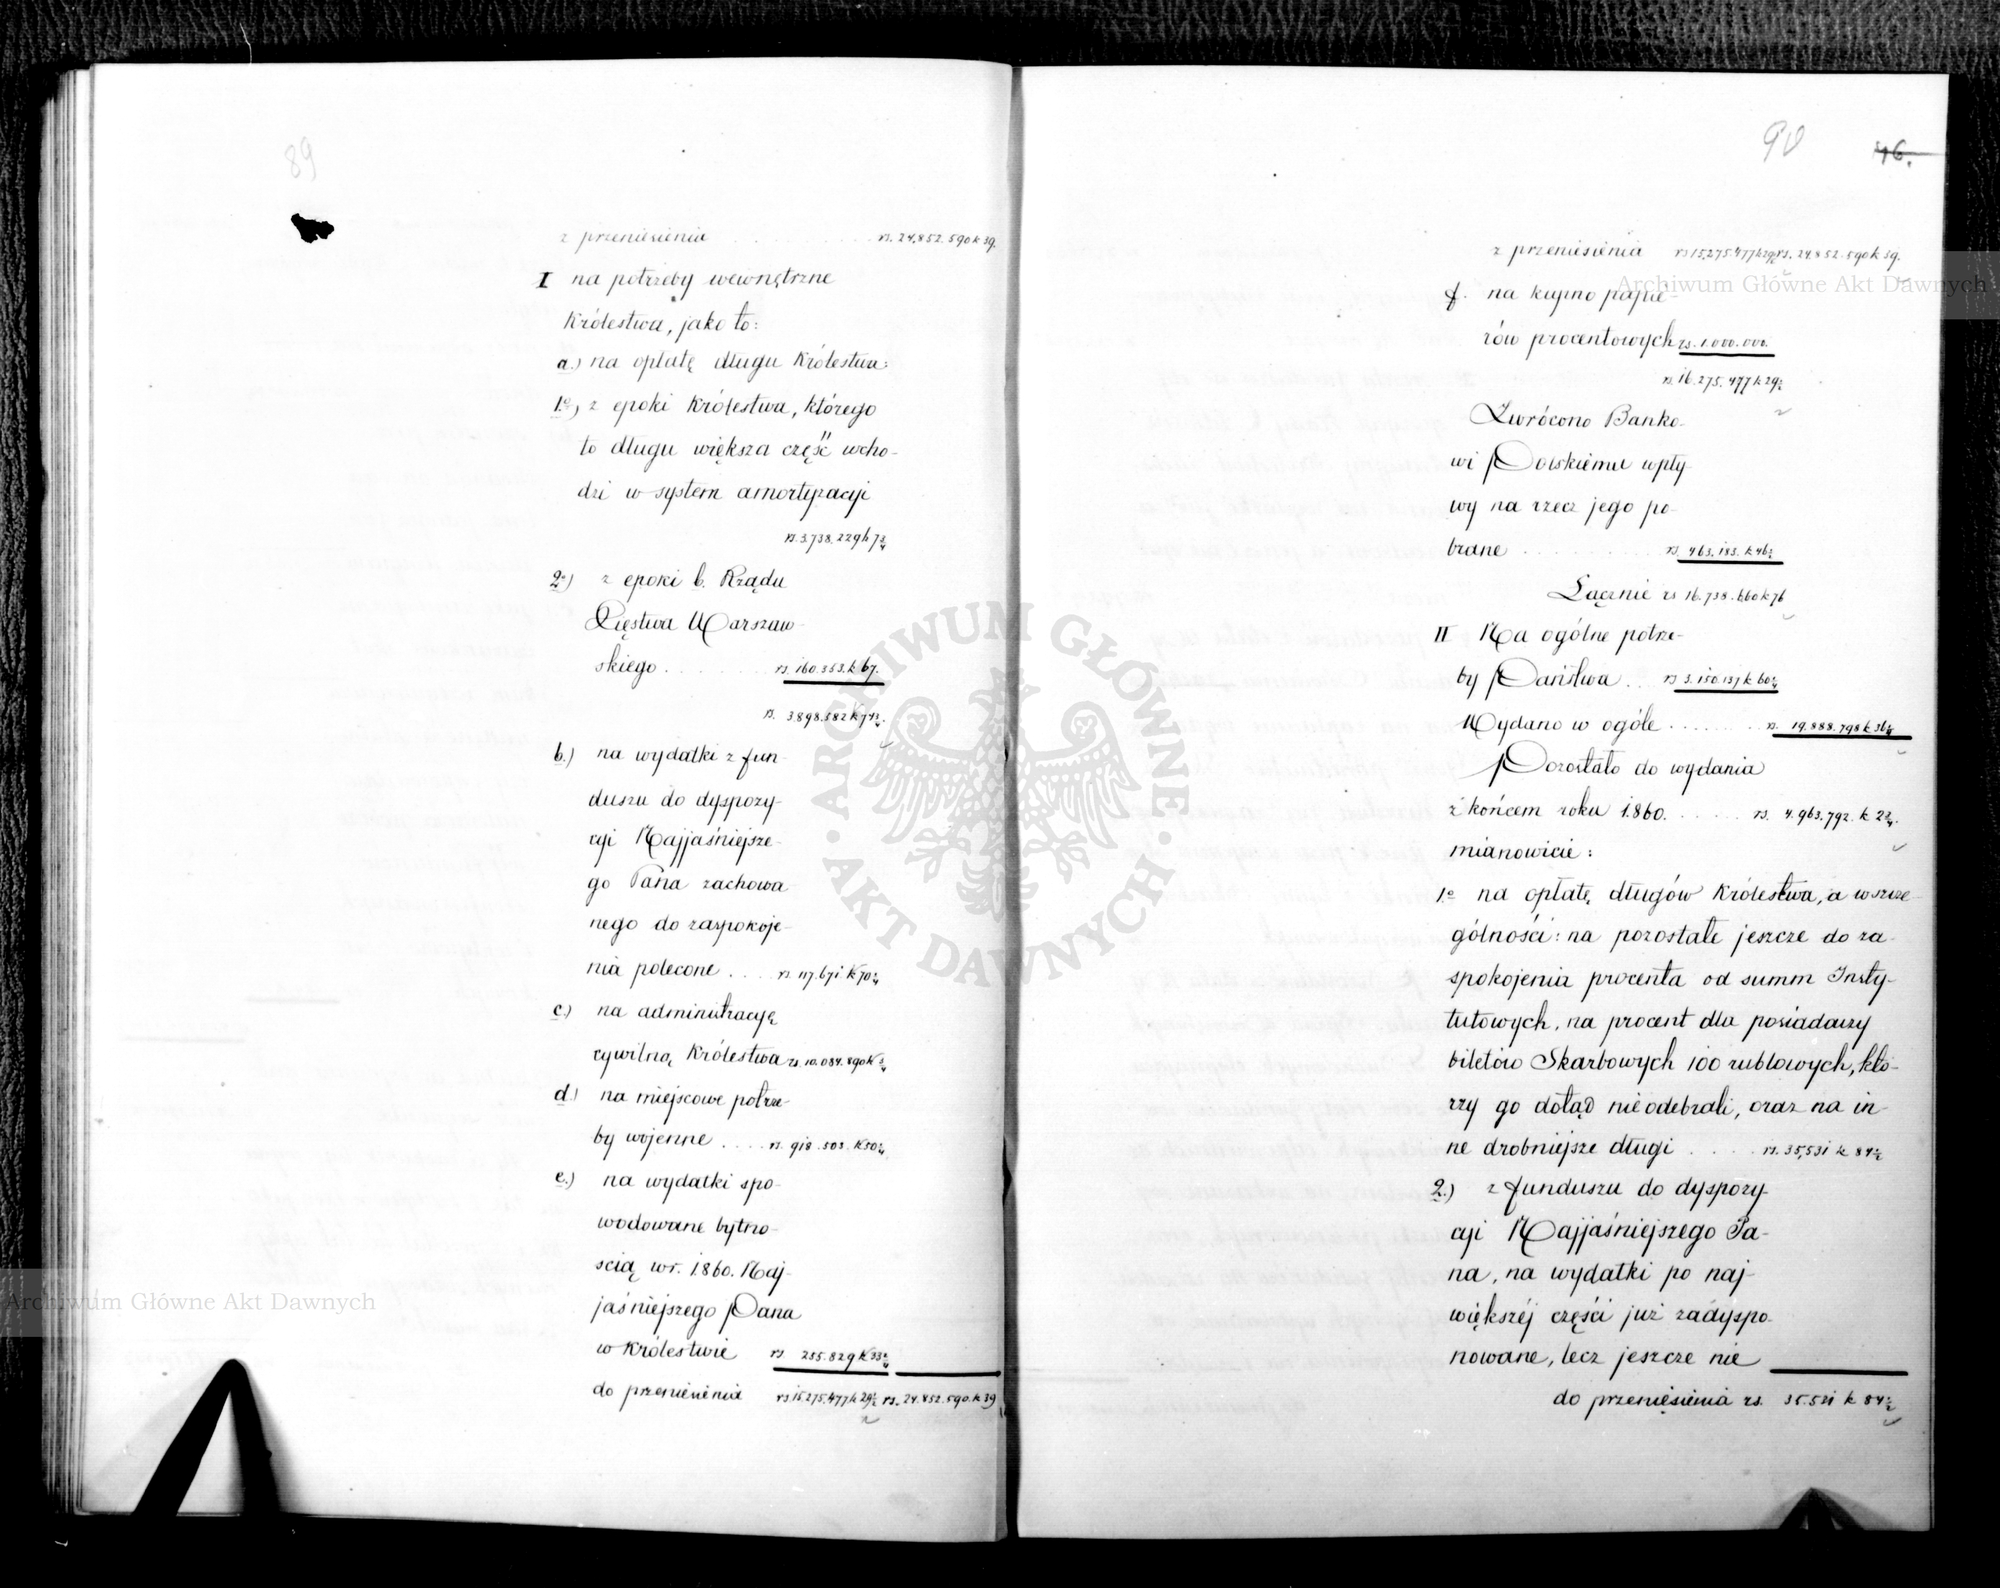 89
z przeniesienia . . . . . . . . rs. 24,852.590 k 39.
I na potrzeby wewnętrzne
Królestwa, jako to:
a.) na opłatę długu Królestwa:
1o) z epoki Królestwa, którego
to długu większa część wcho-
dzi w system amortyzacyi
rs. 3.738.229 k 7 3/4
2o) z epoki b. Rządu
Xięstwa Warszaw-
skiego . . . . . . . rs. 160.353. k 67.
rs. 3898.582 k 74 3/4.
b.) na wydatki z fun-
duszu do dyspozy-
cyi Najjaśniejsze-
go Pana zachowa
nego do zaspokoje-
nia polecone . . . . rs. 117.671. k 70
c.) na administracyę
cywilną Królestwa rs. 10.084.890 k
d.) na miejscowe potrze-
by wojenne . . . . rs. 918.503. k 50
e.) na wydatki spo-
wodowane bytno-
ścią w r. 1860. Naj-
jaśniejszego Pana
w Królestwie rs 255.829 k 33
do przeniesienia rs 15.275.477 k 29 1/2 rs. 24.852.590. k 39
90 46.
z przeniesienia rs 15,275.477 k 29 1/2 rs. 24.852.590 k 39.
f. na kupno papie-
rów procentowych rs. 1.000.000.
rs. 16.275.477 k 29 1/2
Zwrócono Banko-
wi Polskiemu wpły-
wy na rzecz jego po-
brane . . . . . . . . rs 463.183. k 46 1/2
Łącznie rs 16.738.660 k 76
II Na ogólne potrze-
by Państwa . . rs 3.150.137 k 60 1/4
Wydano w ogóle . . . . . . . rs. 19.888.798 k 36 1/4
Pozostało do wydania
z końcem roku 1860. . . . . . rs. 4.963.792. k 2 3/4.
mianowicie:
1o na opłatę długów Królestwa, a w szcze-
gólności: na pozostałe jeszcze do za-
spokojenia procenta od summ Insty-
tutowych, na procent dla posiadaczy
biletów Skarbowych 100 rublowych, któ-
rzy go dotąd nieodebrali, oraz na in-
ne drobniejsze długi . . . . rs. 35,531 k 84 1/2
2.) z funduszu do dyspozy-
cyi Najjaśniejszego Pa-
na, na wydatki po naj-
większéj części już zadyspo-
nowane, lecz jeszcze nie
do przeniesienia rs. 35.531 k 84 1/2
Archiwum Główne Akt Dawnych
Archiwum Główne Akt Dawnych
ARCHIWUM GŁÓWNE • AKT DAWNYCH •